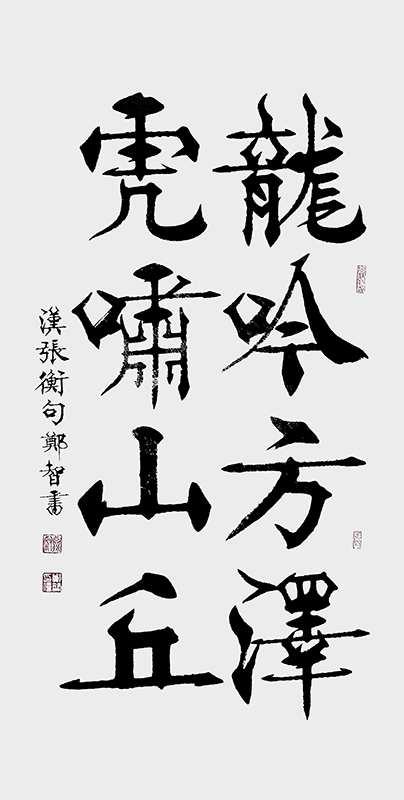 龍吟方澤
虎嘯山丘
漢張衡句鄭智書